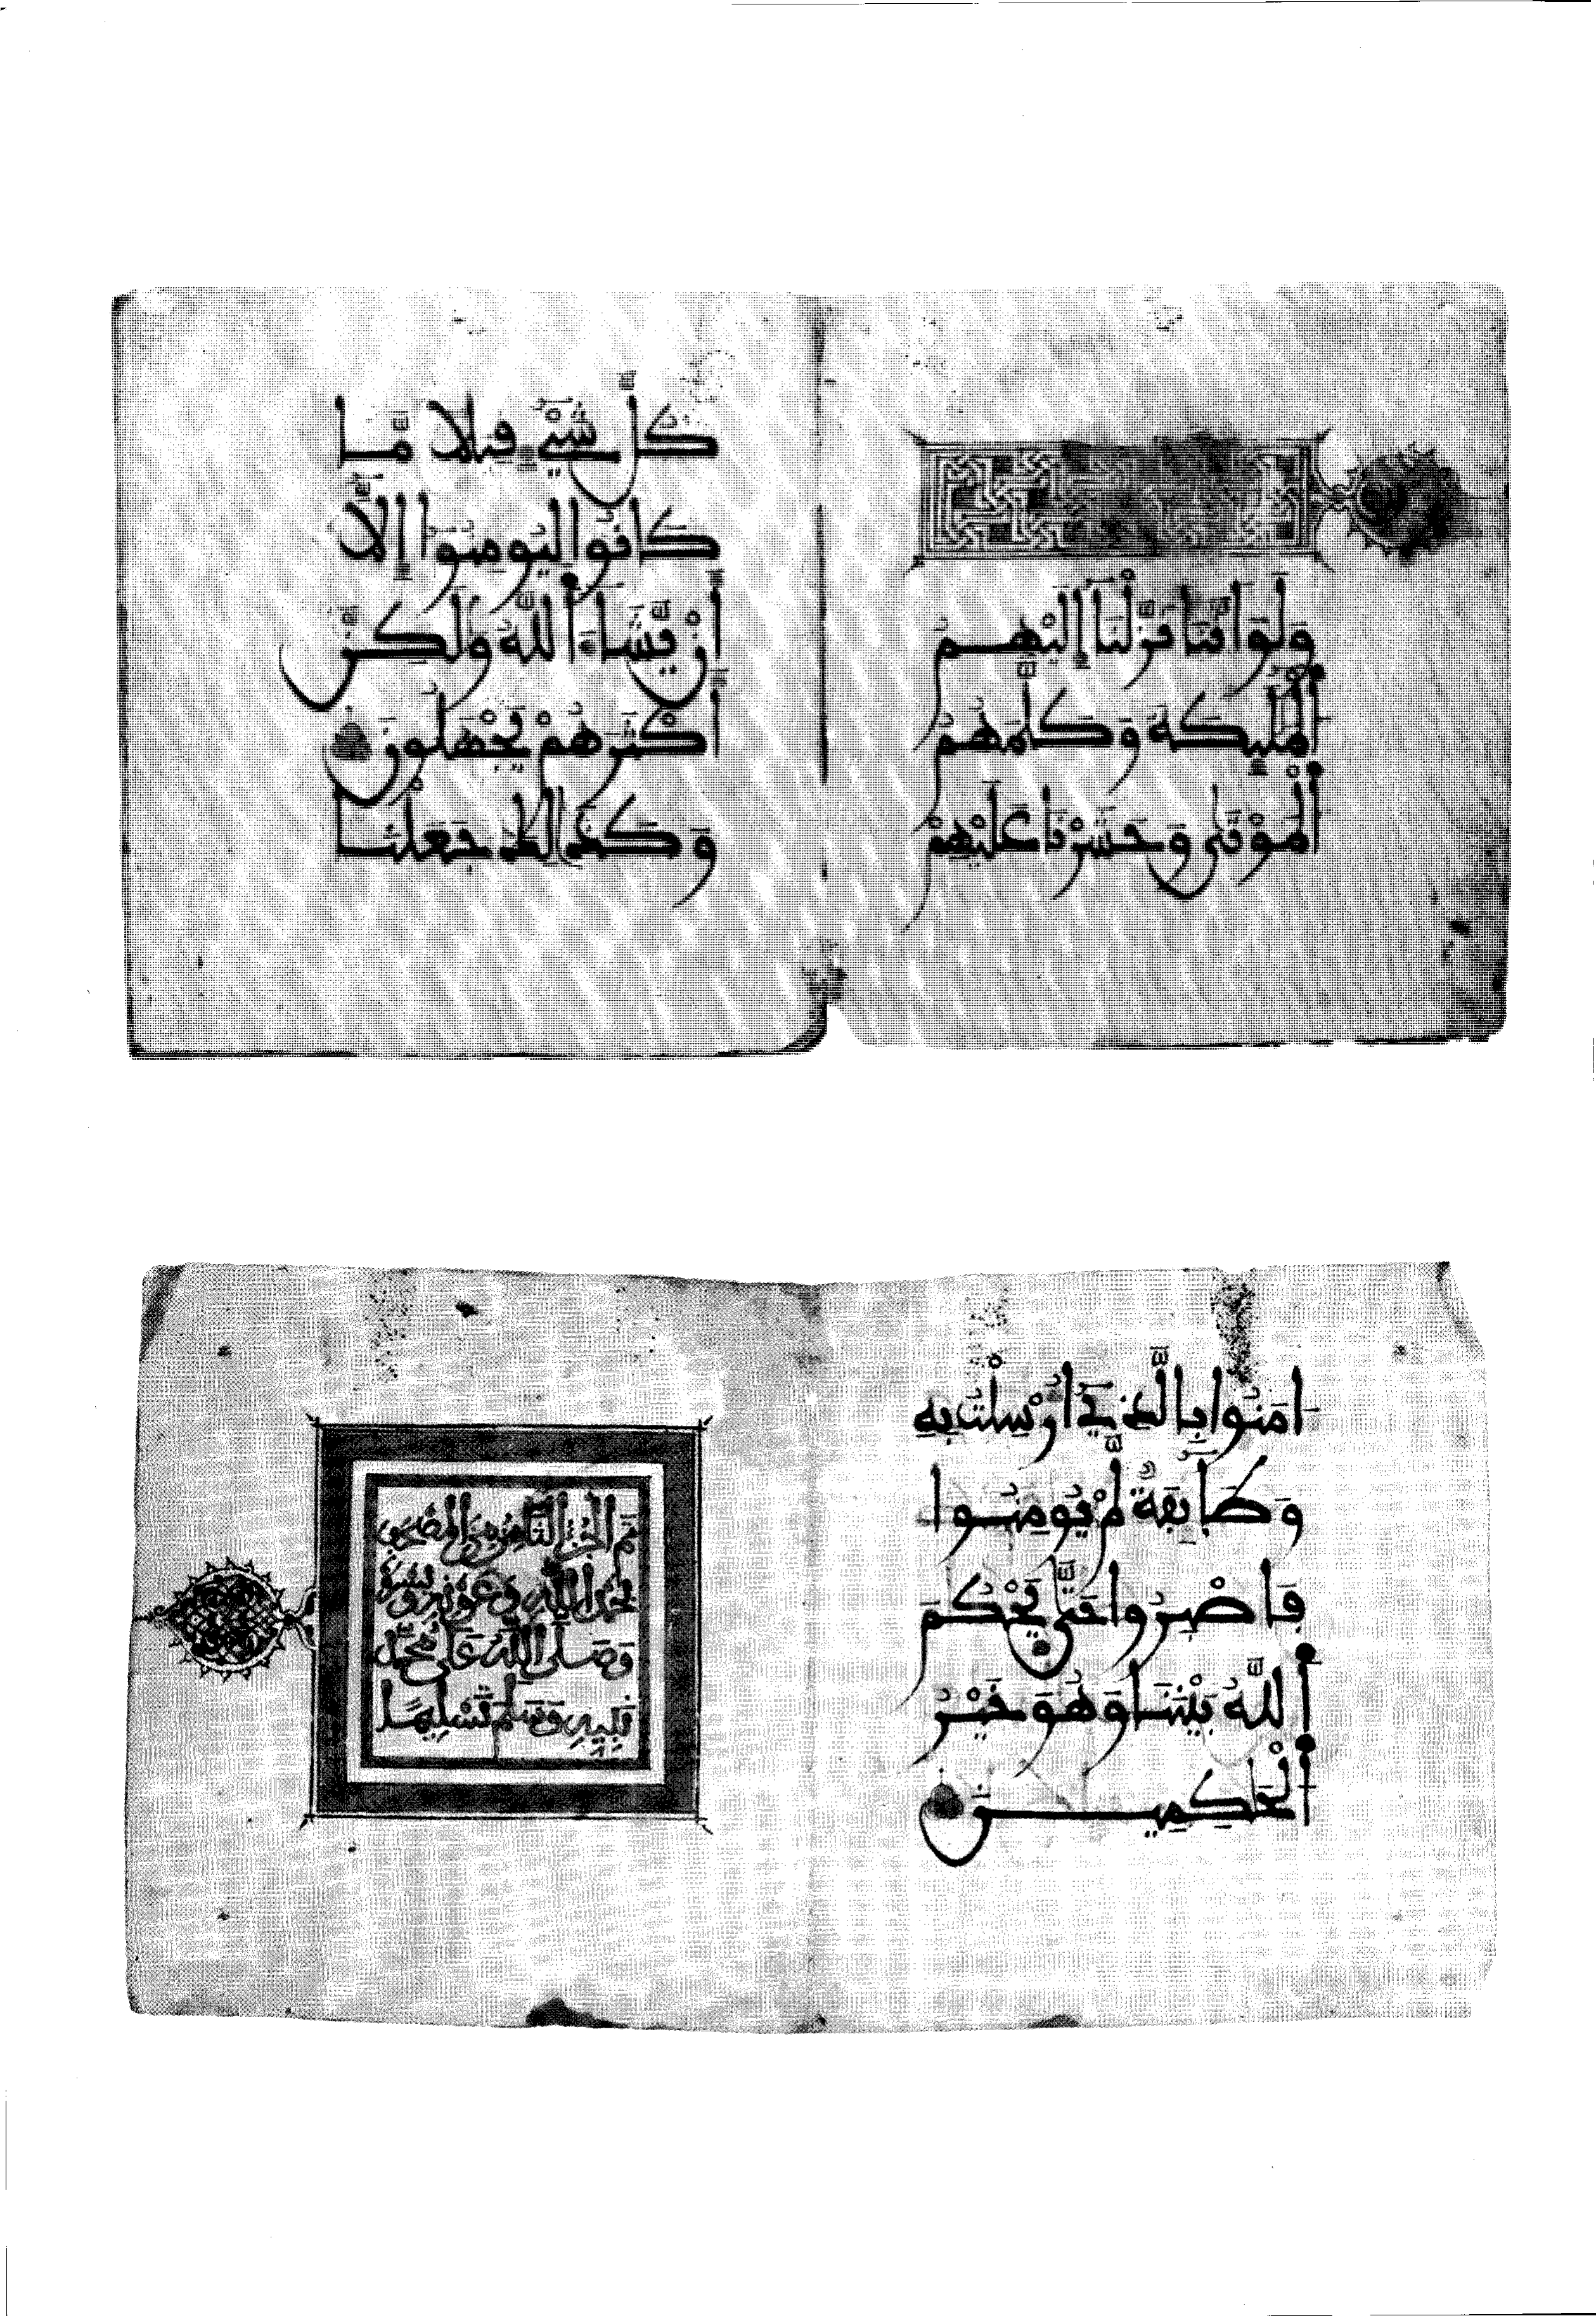 وَلَوَ اَنَّنَا نَزَّلْنَآ إِلَيْهِمُ
اُ۬لْمَلَٰٓئِكَةَ وَكَلَّمَهُمُ
اُ۬لْمَوْتٜىٰ وَحَشَرْنَا عَلَيْهِمْ
كُلَّ شَيْءٖ قِبَلاٗ مَّا
كَانُواْ لِيُومِنُوٓاْ إِلَّآ
أَنْ يَّشَآءَ اَ۬للَّهُ وَلَٰكِنَّ
أَكْثَرَهُمْ يَجْهَلُونَ
وَكَذَٰلِكَ جَعَلْنَا
ءَامَنُواْ بِالَّذِےٓ أُرْسِلْتُ بِهِۦ
وَطَآئِفَةٞ لَّمْ يُومِنُواْ
فَاصْبِرُواْ حَتَّىٰ يَحْكُمَ
اَ۬للَّهُ بَيْنَنَا وَهُوَ خَيْرُ
اُ۬لْحَٰكِمِينَ
تَمَّ الْجُزْءُ الثَّامِنُ مِنَ الْمُصْحَفِ
بِحَمْدِ اللَّهِ وَعَوْنِهِ
وَصَلَّى اللَّهُ عَلَى مُحَمَّدٍ
نَبِيِّهِ وَسَلَّمَ تَسْلِيمًا